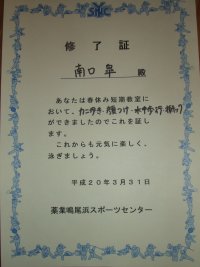 修了証
南口 皐 殿
あなたは春休み短期教室に
おいて、カニ歩き・顔つけ・水中
ができましたのでこれを証し
ます。
これからも元気に楽しく、
泳ぎましょう。
平成20年3月31日
薬業鳴尾浜スポーツセンター